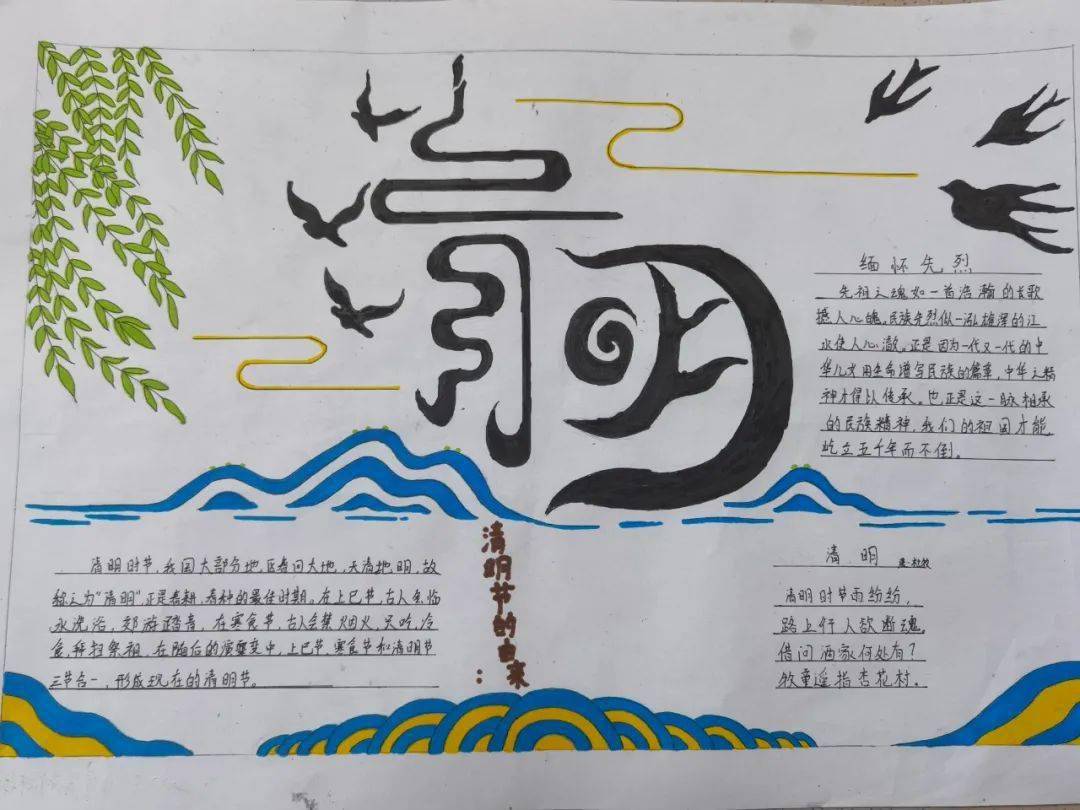 清明
缅怀先烈
先祖之魂如一首浩瀚的长歌
撼人心魄。民族先烈似一泓雄浑的江
水使人心澈。正是因为一代又一代的中
华儿女用生命谱写民族的篇章，中华之精
神才得以传承。也正是这一脉相承
的民族精神，我们的祖国才能
屹立五千年而不倒。
清明节的由来：
清明时节，我国大部分地区春回大地，天清地明，故
称之为“清明”正是春耕、春种的最佳时期。在上巳节，古人会临
水洗浴，郊游踏青，在寒食节，古人会禁烟火，只吃冷
食，拜扫祭祖，在随后的演变中，上巳节、寒食节和清明节
三节合一，形成现在的清明节。
清明 唐·杜牧
清明时节雨纷纷，
路上行人欲断魂。
借问酒家何处有？
牧童遥指杏花村。